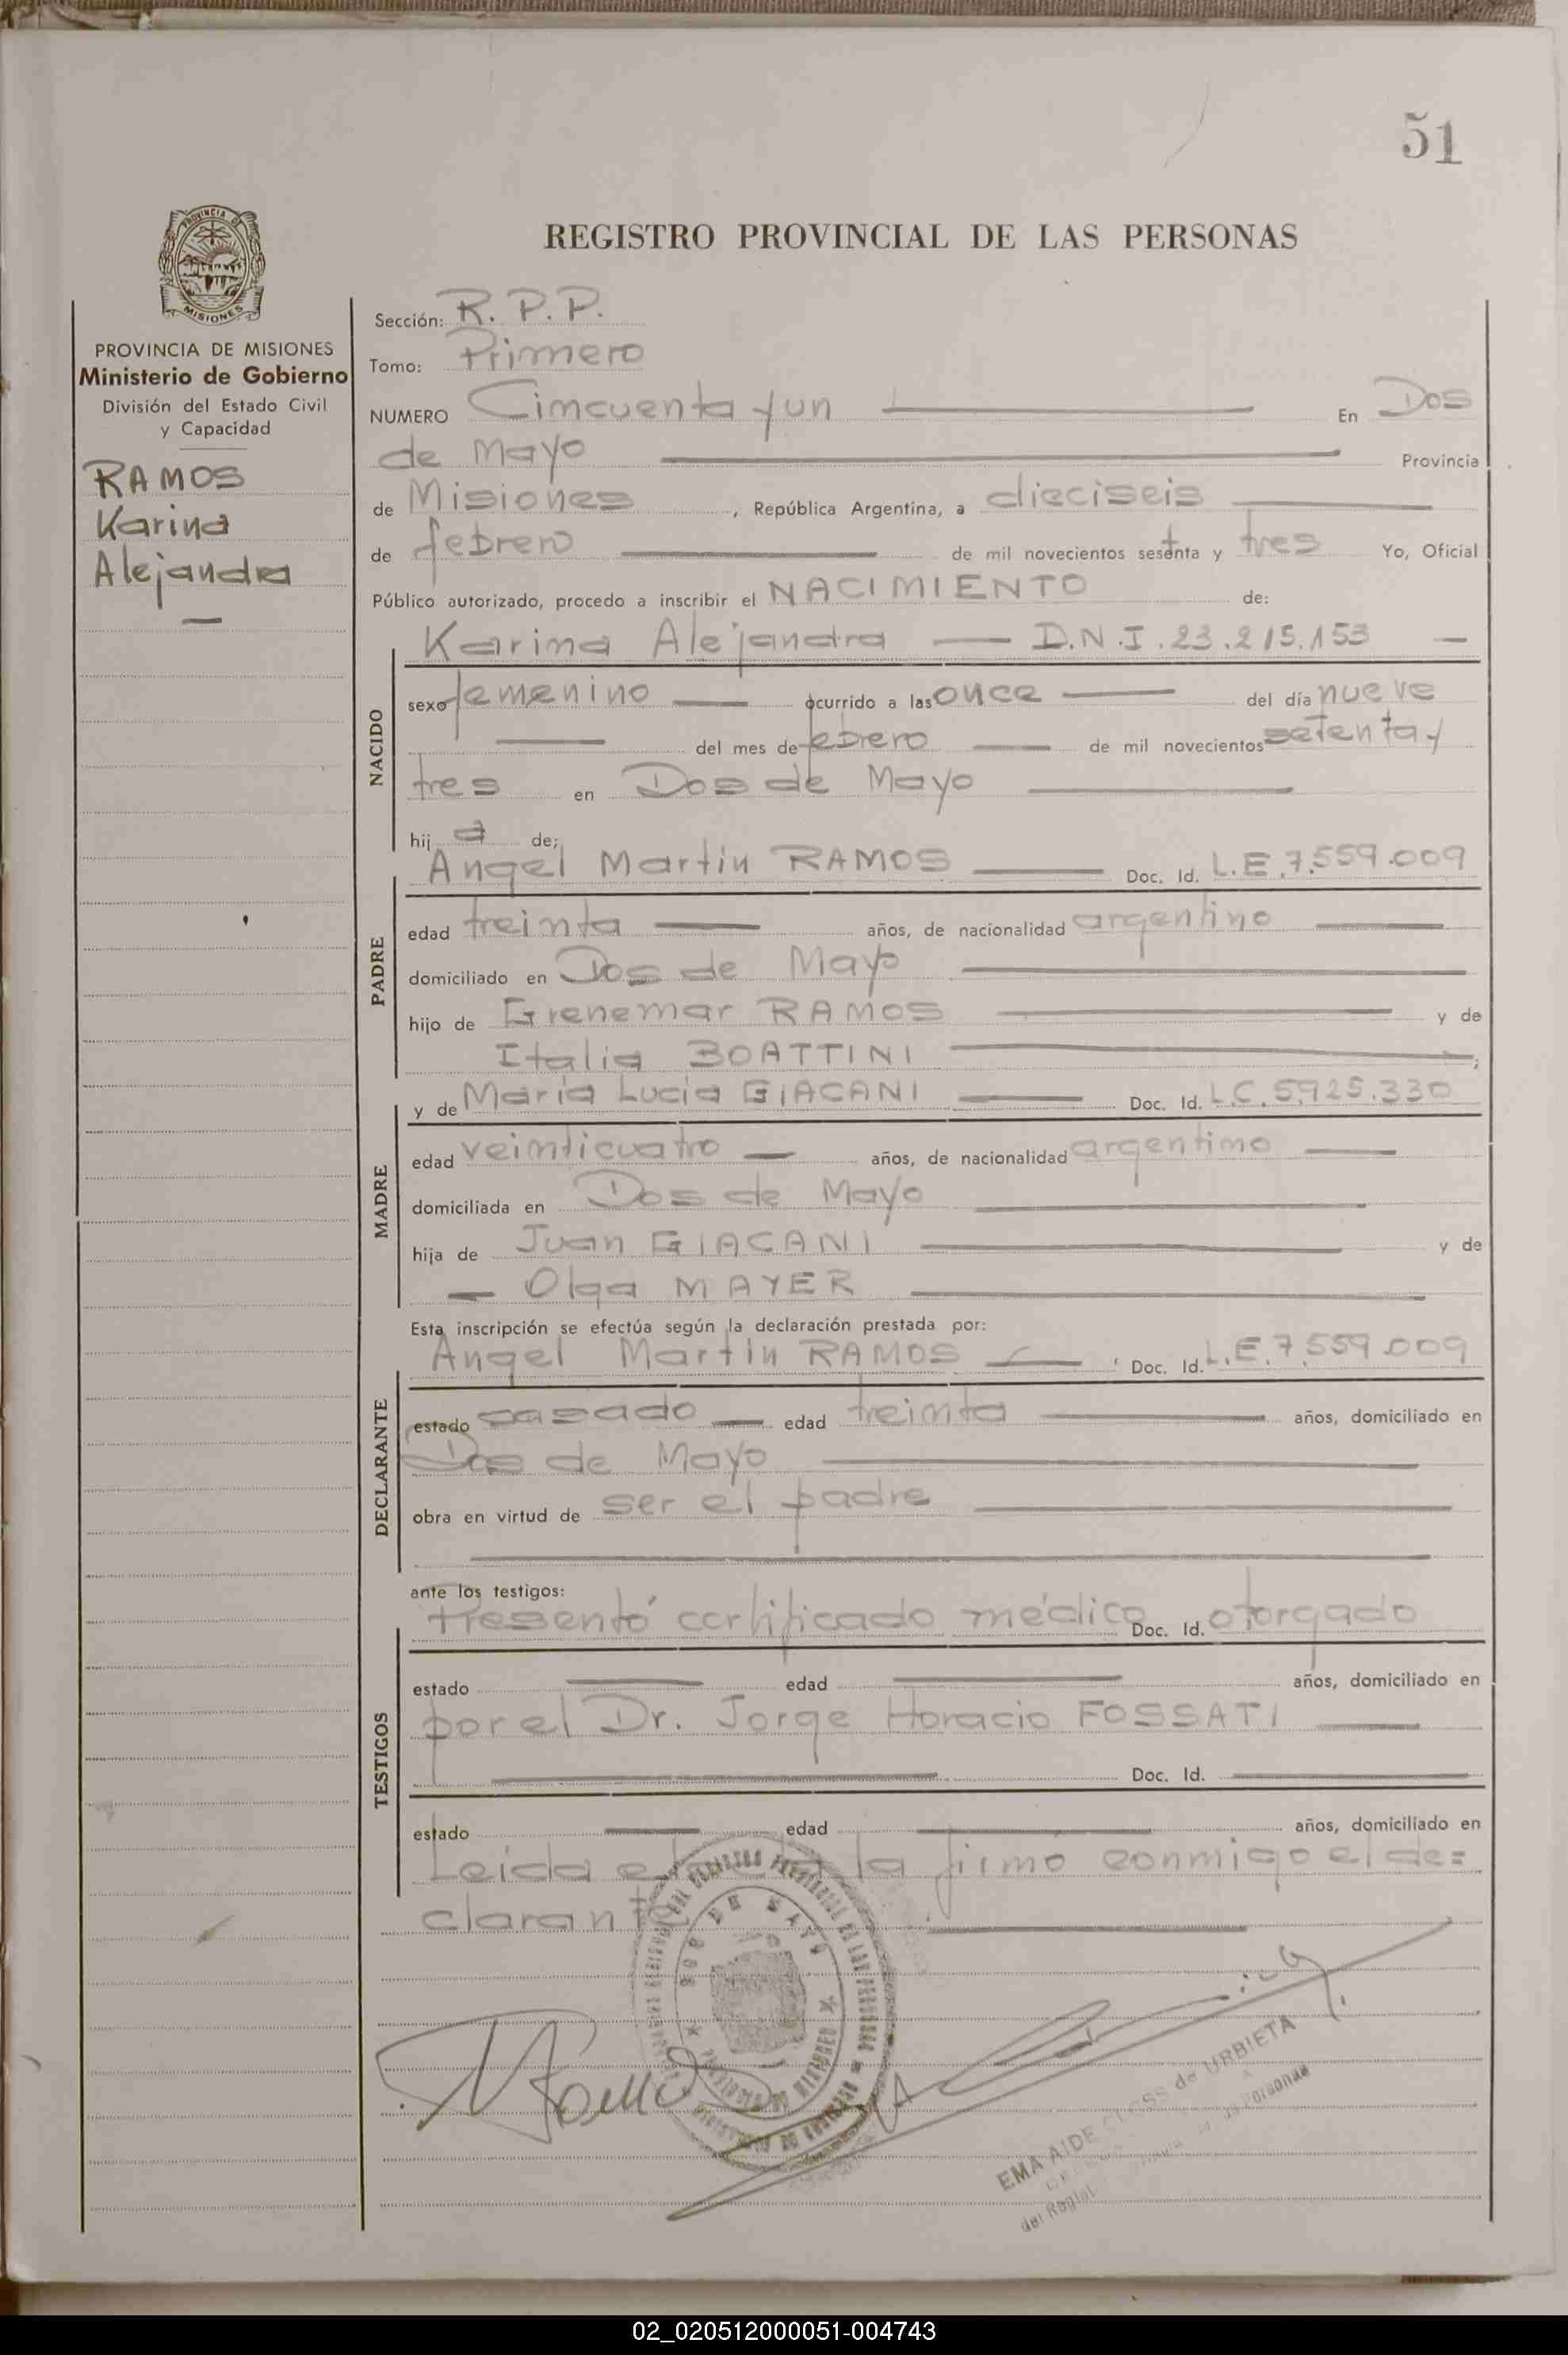 51
REGISTRO PROVINCIAL DE LAS PERSONAS
PROVINCIA DE MISIONES
Ministerio de Gobierno
División del Estado Civil
y Capacidad
RAMOS
Karina
Alejandra
Sección: R. P. P.
Tomo: Primero
NUMERO Cincuenta y un En Dos
de Mayo Provincia
de Misiones, República Argentina, a dieciseis
de febrero de mil novecientos setenta y tres Yo, Oficial
Público autorizado, procedo a inscribir el NACIMIENTO de:
Karina Alejandra — D.N.I. 23.215.153 —
NACIDO
sexo femenino ocurrido a las once del día nueve
del mes de febrero de mil novecientos setenta y
tres en Dos de Mayo
hij a de;
Angel Martin RAMOS Doc. Id. L.E. 7.559.009
PADRE
edad treinta años, de nacionalidad argentino
domiciliado en Dos de Mayo
hijo de Grenemar RAMOS y de
Italia BOATTINI ;
y de María Lucia GIACANI Doc. Id. L.C. 5.925.330
MADRE
edad veinticuatro años, de nacionalidad argentino
domiciliada en Dos de Mayo
hija de Juan GIACANI y de
— Olga MAYER
Esta inscripción se efectúa según la declaración prestada por:
Angel Martin RAMOS Doc. Id. L.E. 7.559.009
DECLARANTE
estado casado edad treinta años, domiciliado en
Dos de Mayo
obra en virtud de ser el padre
ante los testigos:
Presentó certificado médico Doc. Id. otorgado
TESTIGOS
estado edad años, domiciliado en
por el Dr. Jorge Horacio FOSSATI
Doc. Id.
estado edad años, domiciliado en
Leida el acta la firmó conmigo el de=
clarante
DOS DE MAYO
EMA AIDE de URBIETA
Personas
02_020512000051-004743